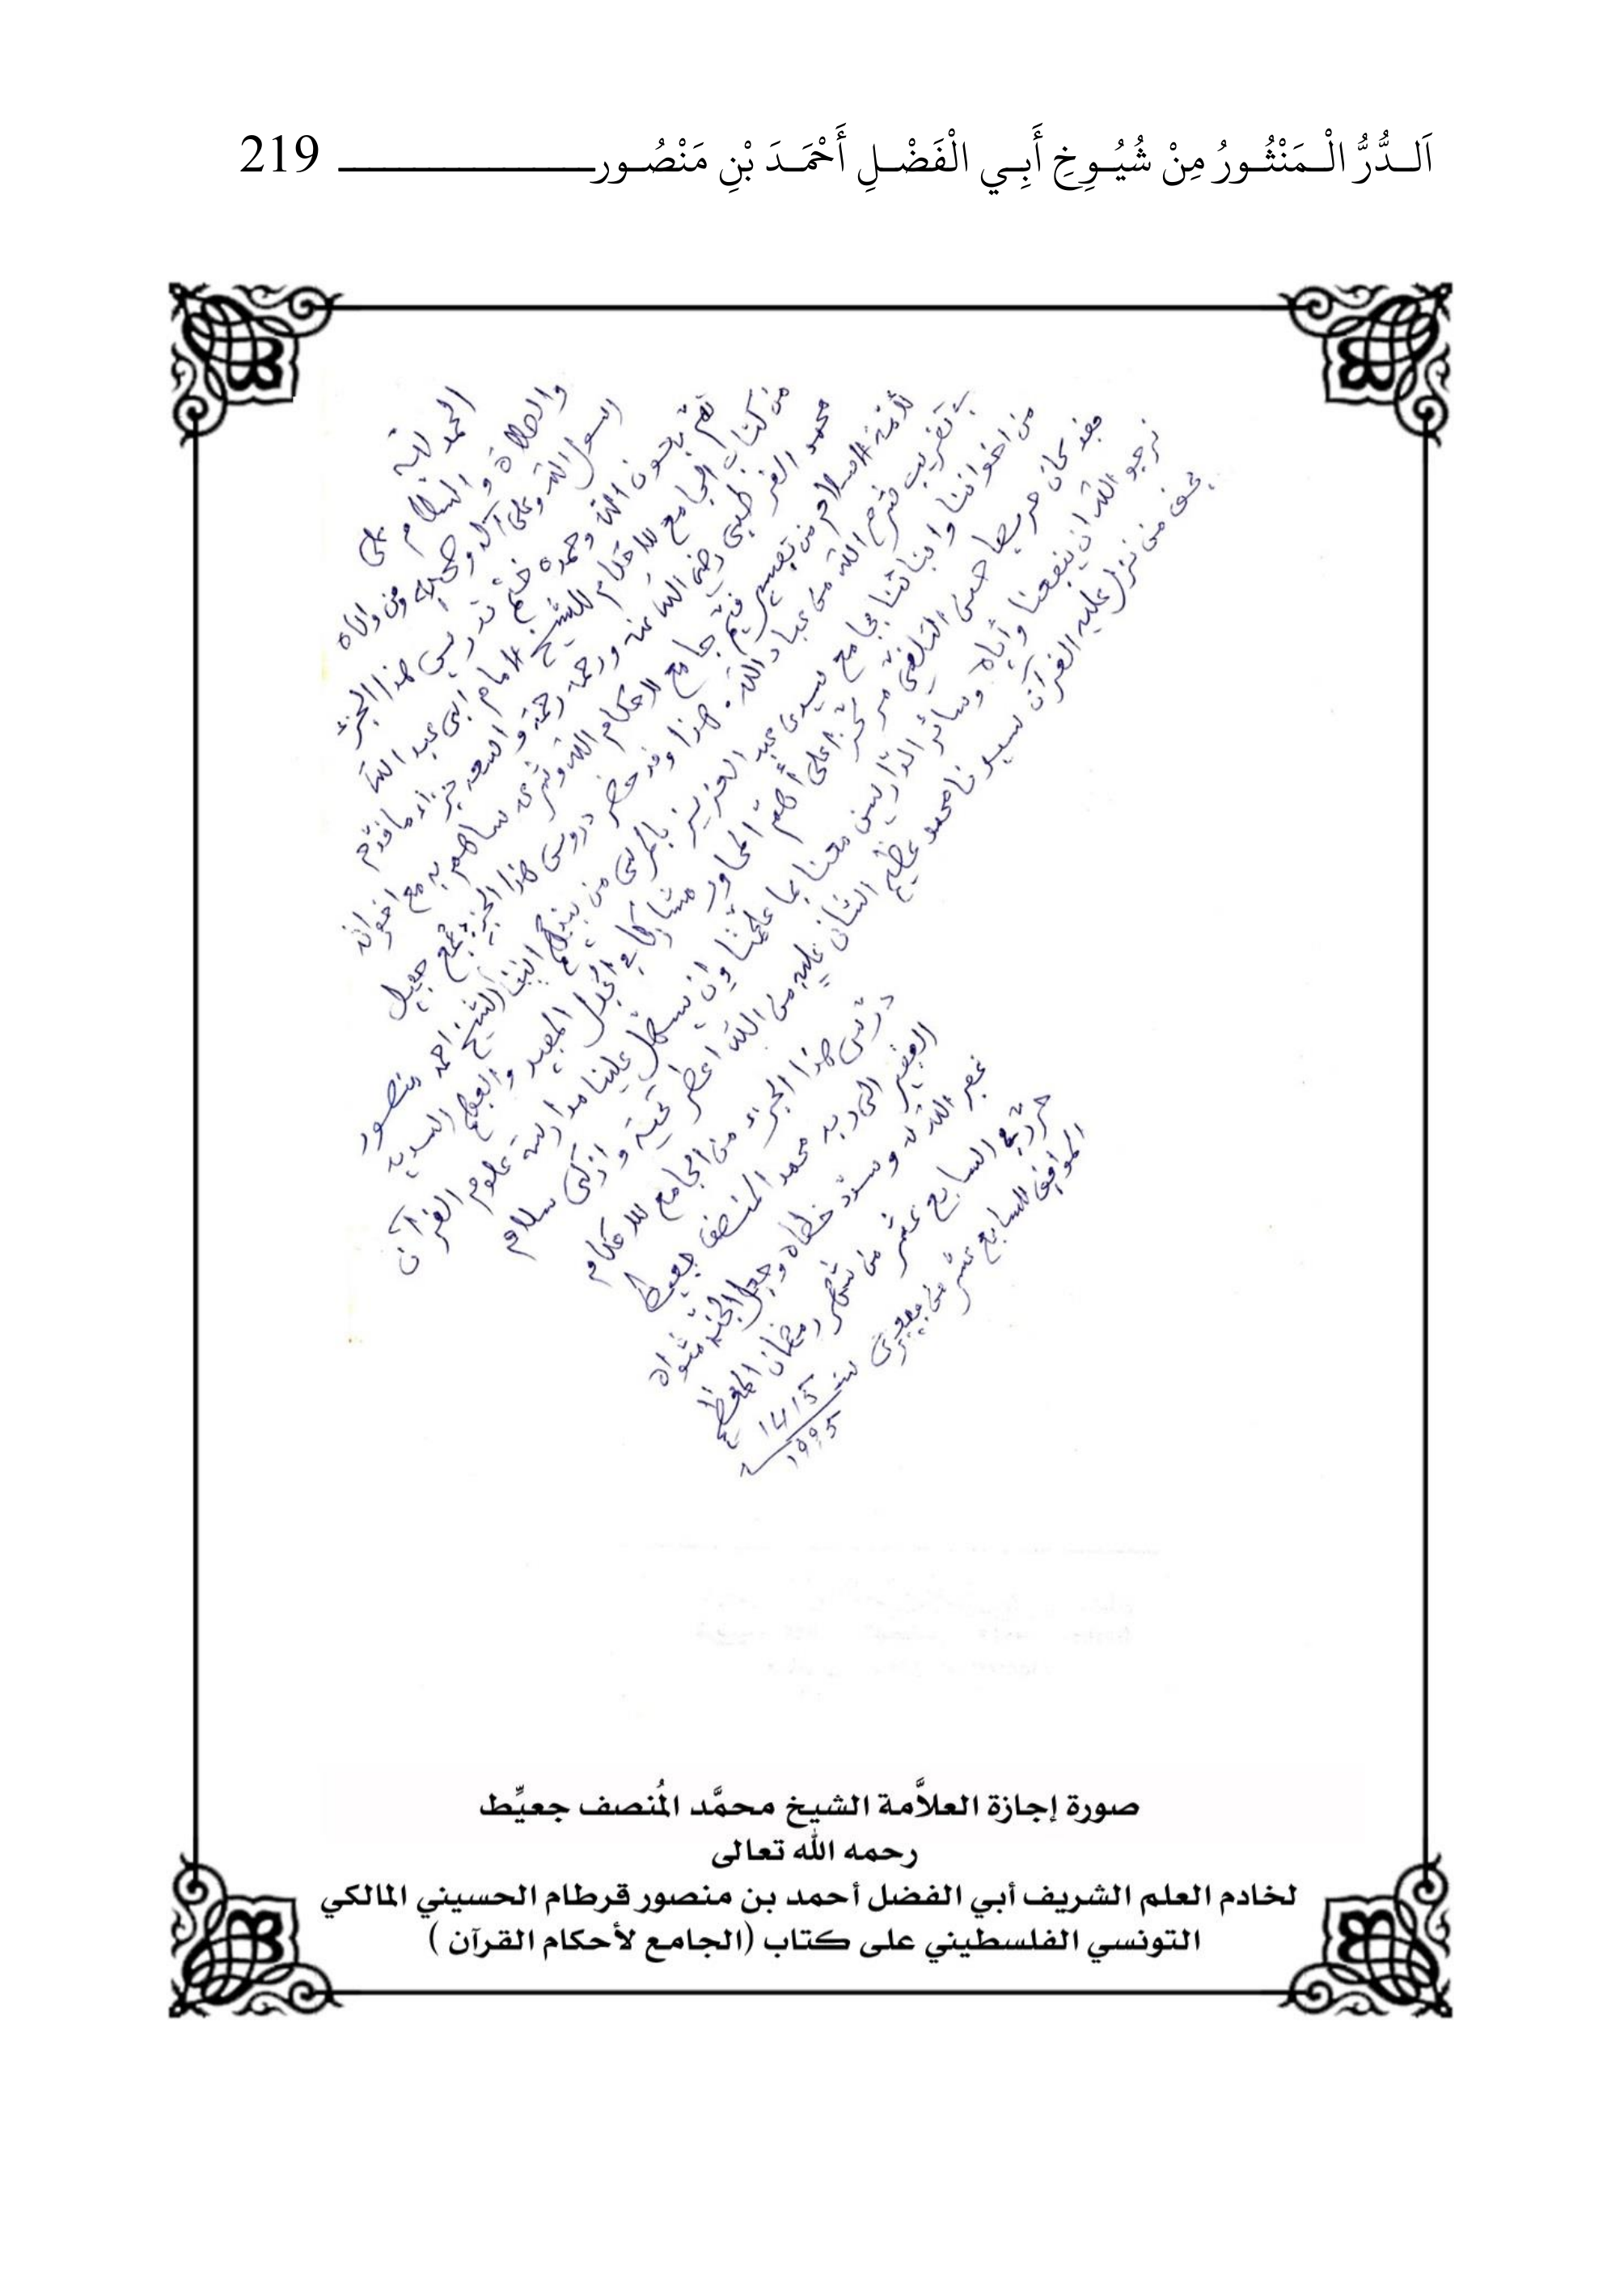 اَلـدُّرُّ الْـمَنْثُـورُ مِنْ شُيُـوخِ أَبِـي الْفَضْـلِ أَحْمَـدَ بْنِ مَنْصُـور 219
الحمد لله
والصلاة و السلام على
رسول الله وعلى آله وصحبه ومن والاه
تم بعون الله وحمده ختم تدريس هذا الجزء
من كتاب الجامع للأحكام للشيخ الامام ابي عبد الله
محمد القرطبي رضي الله عنه ورحمه رحمة واسعة جزاء ما قدّم
لأمة الاسلام من تفسير قيّم جامع لأحكام الله
من عباد الله . هذا وقد حضر دروس هذا الجزء جمع جميل
من اخواننا وابنائنا بجامع سيدي عبد العزيز بالمرسى من بينهم الشيخ احمد منصور
فقد كان حريصا حسن التلقي مركّزا على أهم المحاور مشاركا في الجدل المفيد والفهم السديد
نرجو الله ان ينفعنا وأياه وسائر الدارسين معنا بما علّمنا وان يسهّل علينا مدارسة علوم القرآن
بحق من نزل عليه القرآن سيدنا محمد عظيم الشأن عليه من الله اعطر تحية و ازكى سلام
درّس هذا الجزء من الجامع للأحكام
الفقير الى ربه محمد المنصف جعيط
غفر الله له وسدّد خطاه وجعل الجنة مثواه
حرّر في السابع عشر من شهر رمضان المعظم
الموافق للسابع عشر من فيفري سنة 1415
1995
صورة إجازة العلاَّمة الشيخ محمَّد المُنصف جعيِّط
رحمه الله تعالى
لخادم العلم الشريف أبي الفضل أحمد بن منصور قرطام الحسيني المالكي
التونسي الفلسطيني على كتاب (الجامع لأحكام القرآن )